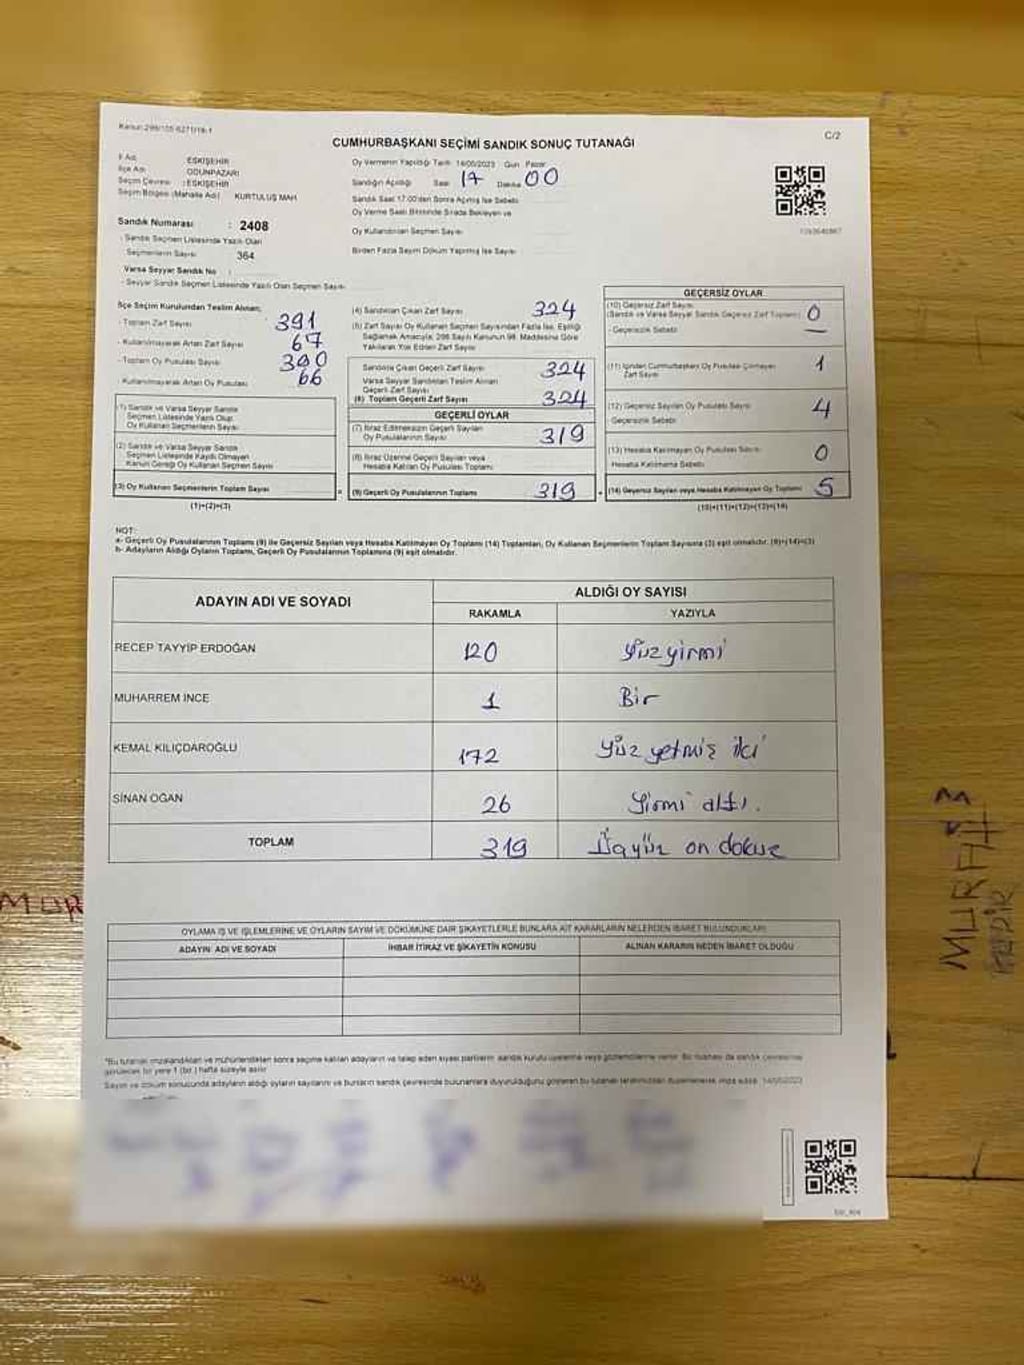 Kanun:298/105-6271/19-1
C/2
CUMHURBAŞKANI SEÇİMİ SANDIK SONUÇ TUTANAĞI
İl Adı ESKİŞEHİR
İlçe Adı ODUNPAZARI
Seçim Çevresi : ESKİŞEHİR
Seçim Bölgesi (Mahalle Adı) KURTULUŞ MAH
Oy Vermenin Yapıldığı Tarih 14/05/2023 Gün Pazar
Sandığın Açıldığı Saat 17 Dakika 00
Sandık Saat 17:00'den Sonra Açılmış İse Sebebi
Oy Verme Saati Bitiminde Sırada Bekleyen ve
Oy Kullandırılan Seçmen Sayısı
Birden Fazla Sayım Döküm Yapılmış İse Sayısı
Sandık Numarası : 2408
- Sandık Seçmen Listesinde Yazılı Olan
Seçmenlerin Sayısı 364
Varsa Seyyar Sandık No :
- Seyyar Sandık Seçmen Listesinde Yazılı Olan Seçmen Sayısı
İlçe Seçim Kurulundan Teslim Alınan;
- Toplam Zarf Sayısı 391
- Kullanılmayarak Artan Zarf Sayısı 67
- Toplam Oy Pusulası Sayısı 390
- Kullanılmayarak Artan Oy Pusulası 66
(1) Sandık ve Varsa Seyyar Sandık
Seçmen Listesinde Yazılı Olup
Oy Kullanan Seçmenlerin Sayısı
(2) Sandık ve Varsa Seyyar Sandık
Seçmen Listesinde Kaydı Olmayan
Kanun Gereği Oy Kullanan Seçmen Sayısı
(3) Oy Kullanan Seçmenlerin Toplam Sayısı
(1)+(2)=(3)
(4) Sandıktan Çıkan Zarf Sayısı 324
(5) Zarf Sayısı Oy Kullanan Seçmen Sayısından Fazla İse, Eşitliği
Sağlamak Amacıyla; 298 Sayılı Kanunun 98. Maddesine Göre
Yakılarak Yok Edilen Zarf Sayısı
Sandıkta Çıkan Geçerli Zarf Sayısı 324
Varsa Seyyar Sandıktan Teslim Alınan
Geçerli Zarf Sayısı
(6) Toplam Geçerli Zarf Sayısı 324
GEÇERLİ OYLAR
(7) İtiraz Edilmeksizin Geçerli Sayılan
Oy Pusulalarının Sayısı 319
(8) İtiraz Üzerine Geçerli Sayılan veya
Hesaba Katılan Oy Pusulası Toplamı
(9) Geçerli Oy Pusulalarının Toplamı 319
GEÇERSİZ OYLAR
(10) Geçersiz Zarf Sayısı
(Sandık ve Varsa Seyyar Sandık Geçersiz Zarf Toplamı) 0
- Geçersizlik Sebebi —
(11) İçinden Cumhurbaşkanı Oy Pusulası Çıkmayan
Zarf Sayısı 1
(12) Geçersiz Sayılan Oy Pusulası Sayısı 4
Geçersizlik Sebebi
(13) Hesaba Katılmayan Oy Pusulası Sayısı 0
Hesaba Katılmama Sebebi
(14) Geçersiz Sayılan veya Hesaba Katılmayan Oy Toplamı 5
(10)+(11)+(12)+(13)=(14)
NOT:
a- Geçerli Oy Pusulalarının Toplamı (9) ile Geçersiz Sayılan veya Hesaba Katılmayan Oy Toplamı (14) Toplamları, Oy Kullanan Seçmenlerin Toplam Sayısına (3) eşit olmalıdır. (9)+(14)=(3)
b- Adayların Aldığı Oyların Toplamı, Geçerli Oy Pusulalarının Toplamına (9) eşit olmalıdır.
ADAYIN ADI VE SOYADI
ALDIĞI OY SAYISI
RAKAMLA YAZIYLA
RECEP TAYYİP ERDOĞAN 120 Yüz yirmi
MUHARREM İNCE 1 Bir
KEMAL KILIÇDAROĞLU 172 Yüz yetmiş iki
SİNAN OĞAN 26 Yirmi altı.
TOPLAM 319 Üçyüz on dokuz
OYLAMA İŞ VE İŞLEMLERİNE VE OYLARIN SAYIM VE DÖKÜMÜNE DAİR ŞİKAYETLERLE BUNLARA AİT KARARLARIN NELERDEN İBARET BULUNDUKLARI
ADAYIN ADI VE SOYADI İHBAR İTİRAZ VE ŞİKAYETİN KONUSU ALINAN KARARIN NEDEN İBARET OLDUĞU
*Bu tutanak imzalandıktan ve mühürlendikten sonra seçime katılan adayların ve talep eden siyasi partilerin sandık kurulu üyelerine veya gözlemcilerine verilir. Bir nüshası da sandık çevresinde
görülecek bir yere 1 (bir) hafta süreyle asılır.
Sayım ve döküm sonucunda adayların aldığı oyların sayılarını ve bunların sandık çevresinde bulunanlara duyurulduğunu gösteren bu tutanak tarafımızdan düzenlenerek, imza edildi. 14/05/2023
MURAT